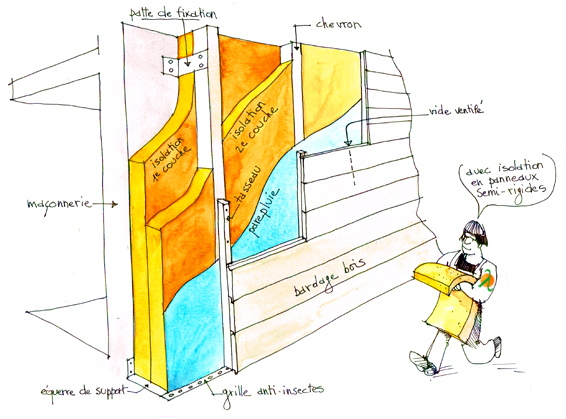 patte de fixation
chevron
isolation
1e couche
isolation
2e couche
vide ventilé
avec isolation
en panneaux
semi-rigides
maçonnerie
tasseau
parepluie
bardage bois
équerre de support
grille anti-insectes